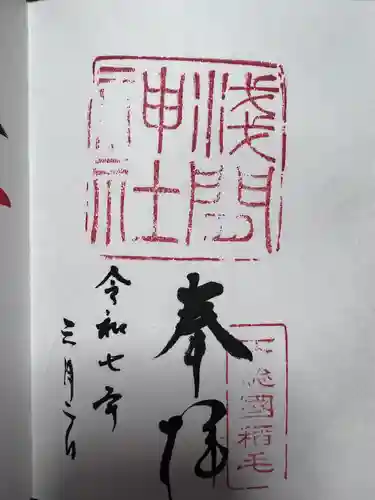 浅間神社
下総国稲毛
奉拝
令和七年
三月二日